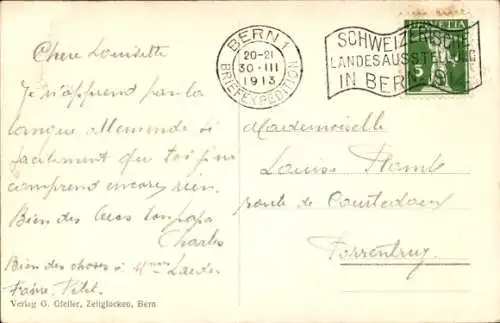 Chère Louisette
Je n'apprend pas la
langue allemande si
facilement que toi j'
comprend encore rien.
Bien des ton papa
Charles
Bien des choses à
BERN 1
20-21
30·III
1913
BRIEFEXPEDITION
SCHWEIZERISCHE
LANDESAUSSTELLUNG
IN BERN
HELVETIA
5
Mademoiselle
Louise
route de Courtedoux
Porrentruy
Verlag G. Gfeller, Zeitglocken, Bern